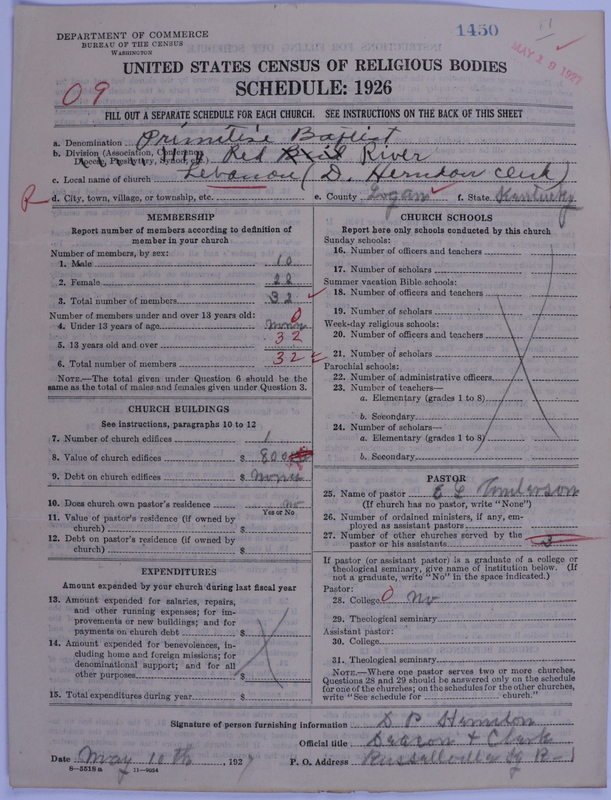 DEPARTMENT OF COMMERCE
BUREAU OF THE CENSUS
WASHINGTON
1450
MAY 19 1927
UNITED STATES CENSUS OF RELIGIOUS BODIES
SCHEDULE: 1926
09
FILL OUT A SEPARATE SCHEDULE FOR EACH CHURCH. SEE INSTRUCTIONS ON THE BACK OF THIS SHEET
a. Denomination Primitive Baptist
b. Division (Association, Conference, Diocese, Presbytery, Synod, etc.) Red River
c. Local name of church Lebanon (D. Herndon clerk)
R
d. City, town, village, or township, etc. e. County Logan f. State Kentucky
MEMBERSHIP
Report number of members according to definition of
member in your church
Number of members, by sex:
1. Male 10
2. Female 22
3. Total number of members 32
Number of members under and over 13 years old: 0
4. Under 13 years of age None
5. 13 years old and over 32
6. Total number of members 32
NOTE.—The total given under Question 6 should be the
same as the total of males and females given under Question 3.
CHURCH BUILDINGS
See instructions, paragraphs 10 to 12
7. Number of church edifices 1
8. Value of church edifices $ 800
9. Debt on church edifices $ None
10. Does church own pastor's residence no
Yes or No
11. Value of pastor's residence (if owned by
church) $
12. Debt on pastor's residence (if owned by
church) $
EXPENDITURES
Amount expended by your church during last fiscal year
13. Amount expended for salaries, repairs,
and other running expenses; for im-
provements or new buildings; and for
payments on church debt $
14. Amount expended for benevolences, in-
cluding home and foreign missions; for
denominational support; and for all
other purposes $
15. Total expenditures during year $
CHURCH SCHOOLS
Report here only schools conducted by this church
Sunday schools:
16. Number of officers and teachers
17. Number of scholars
Summer vacation Bible schools:
18. Number of officers and teachers
19. Number of scholars
Week-day religious schools:
20. Number of officers and teachers
21. Number of scholars
Parochial schools:
22. Number of administrative officers
23. Number of teachers—
a. Elementary (grades 1 to 8)
b. Secondary
24. Number of scholars—
a. Elementary (grades 1 to 8)
b. Secondary
PASTOR
25. Name of pastor E L Tomlerson
(If church has no pastor, write "None")
26. Number of ordained ministers, if any, em-
ployed as assistant pastors
27. Number of other churches served by the
pastor or his assistants 3
If pastor (or assistant pastor) is a graduate of a college or
theological seminary, give name of institution below. (If
not a graduate, write "No" in the space indicated.)
Pastor:
28. College 0 No
29. Theological seminary
Assistant pastor:
30. College
31. Theological seminary
NOTE.—Where one pastor serves two or more churches,
Questions 28 and 29 should be answered only on the schedule
for one of the churches; on the schedules for the other churches,
write "See schedule for church."
Signature of person furnishing information D P Herndon
Official title Deacon & Clerk
Date May 10th, 1927 P. O. Address Russellville Ky R-1
8—5518 a 11—9024